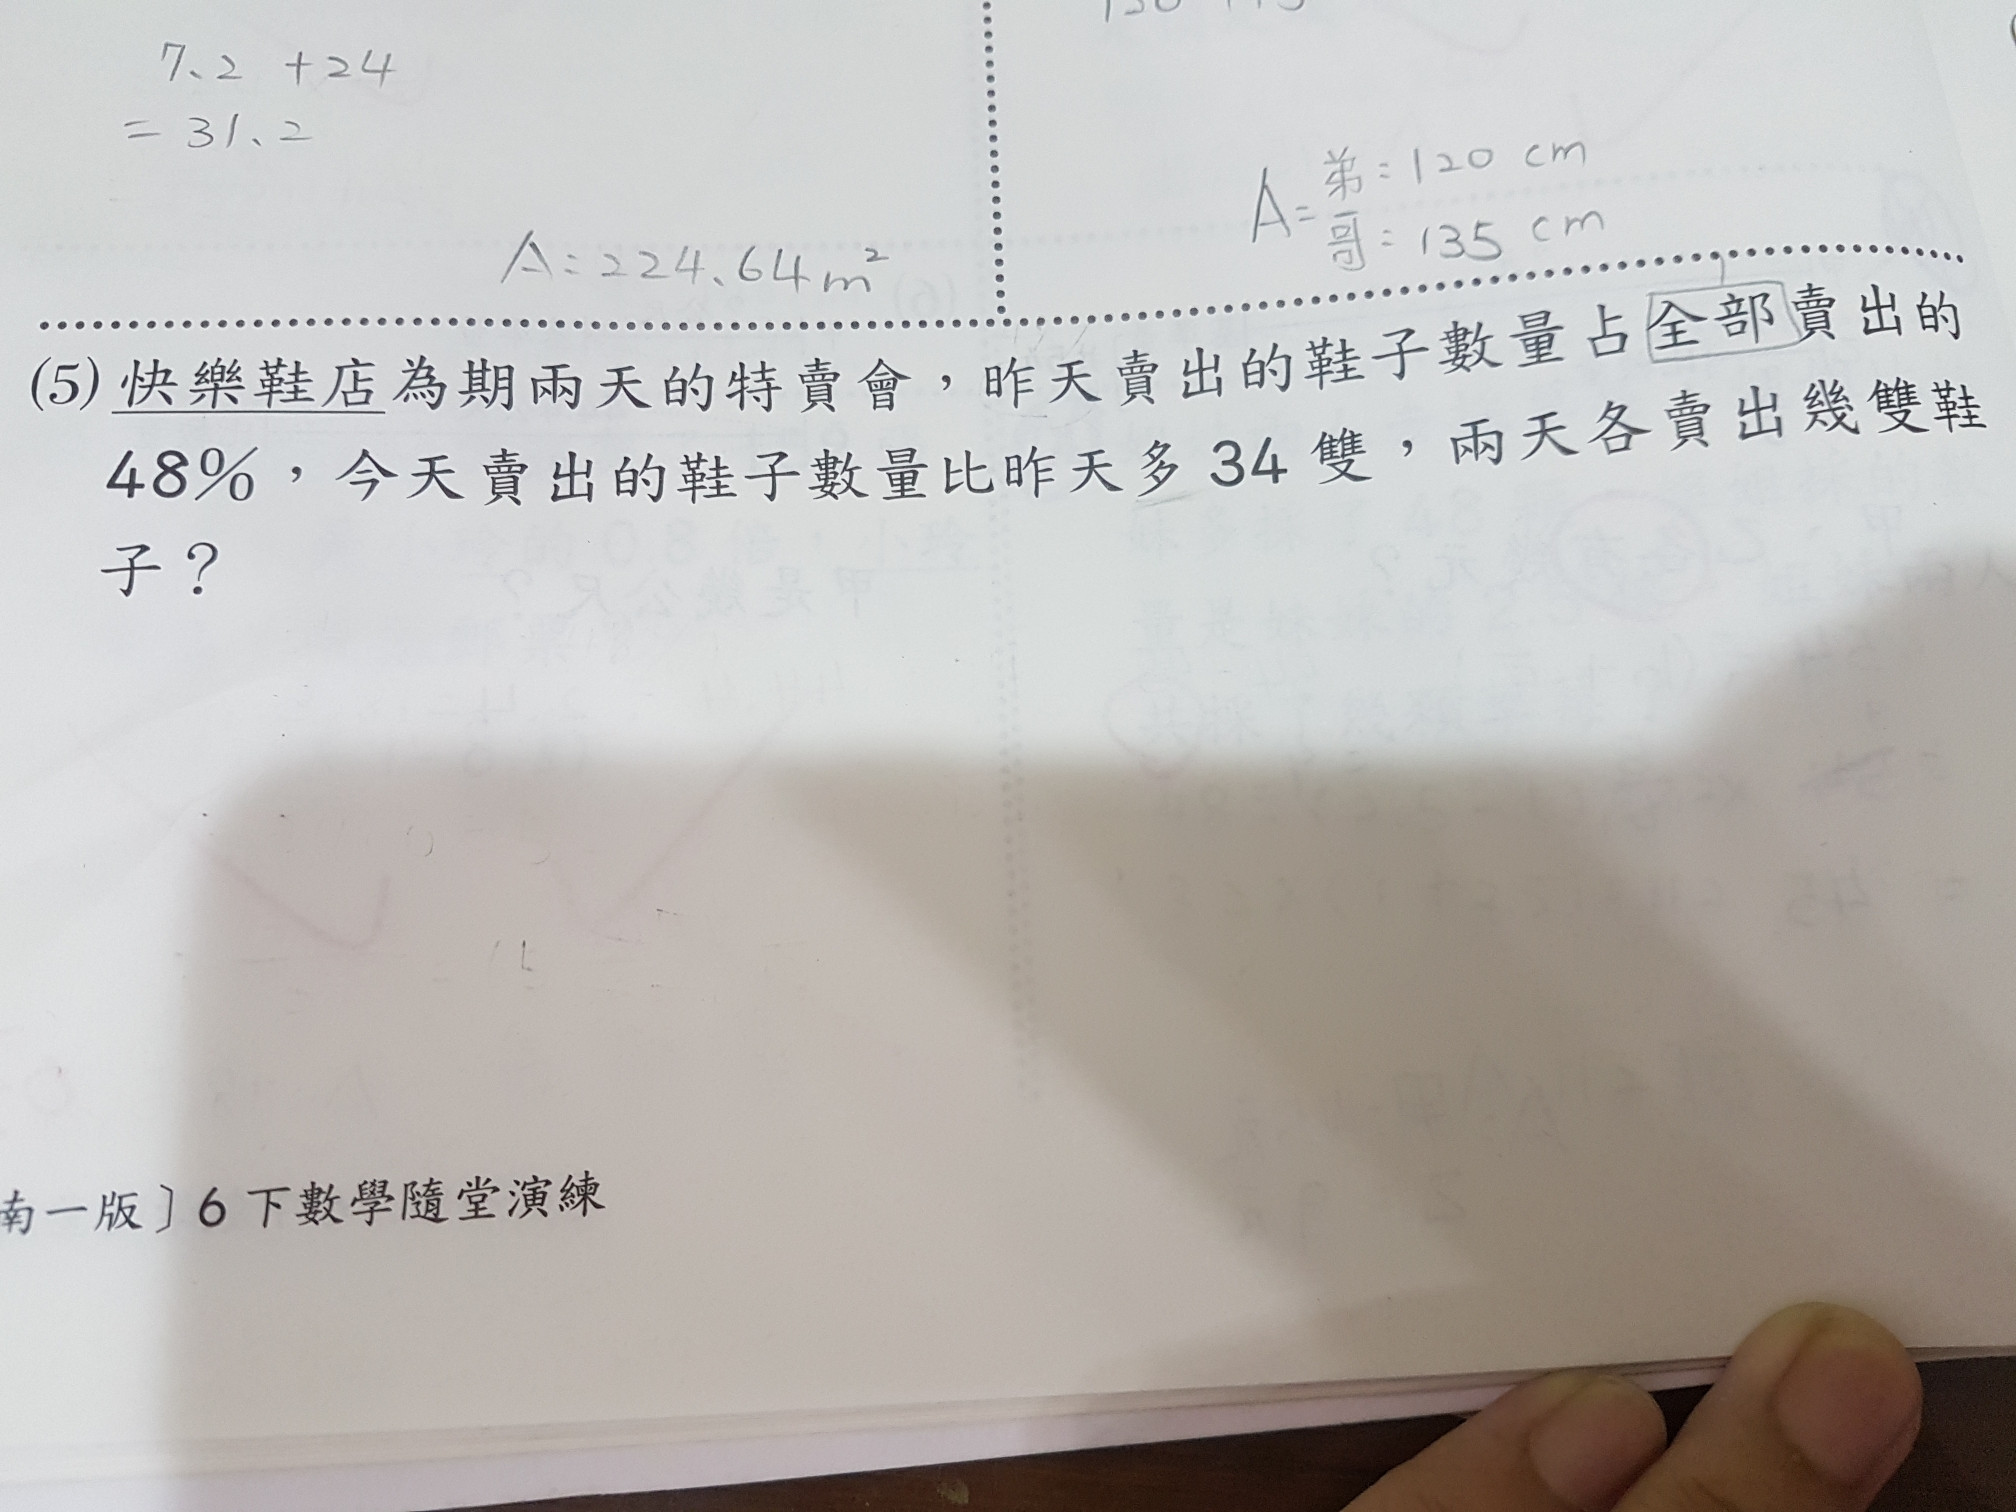 7.2 +24
= 31.2
A:224.64m²
A=弟:120 cm
哥:135 cm
(5) 快樂鞋店為期兩天的特賣會，昨天賣出的鞋子數量占全部賣出的
48%，今天賣出的鞋子數量比昨天多 34 雙，兩天各賣出幾雙鞋
子？
南一版〕6 下數學隨堂演練